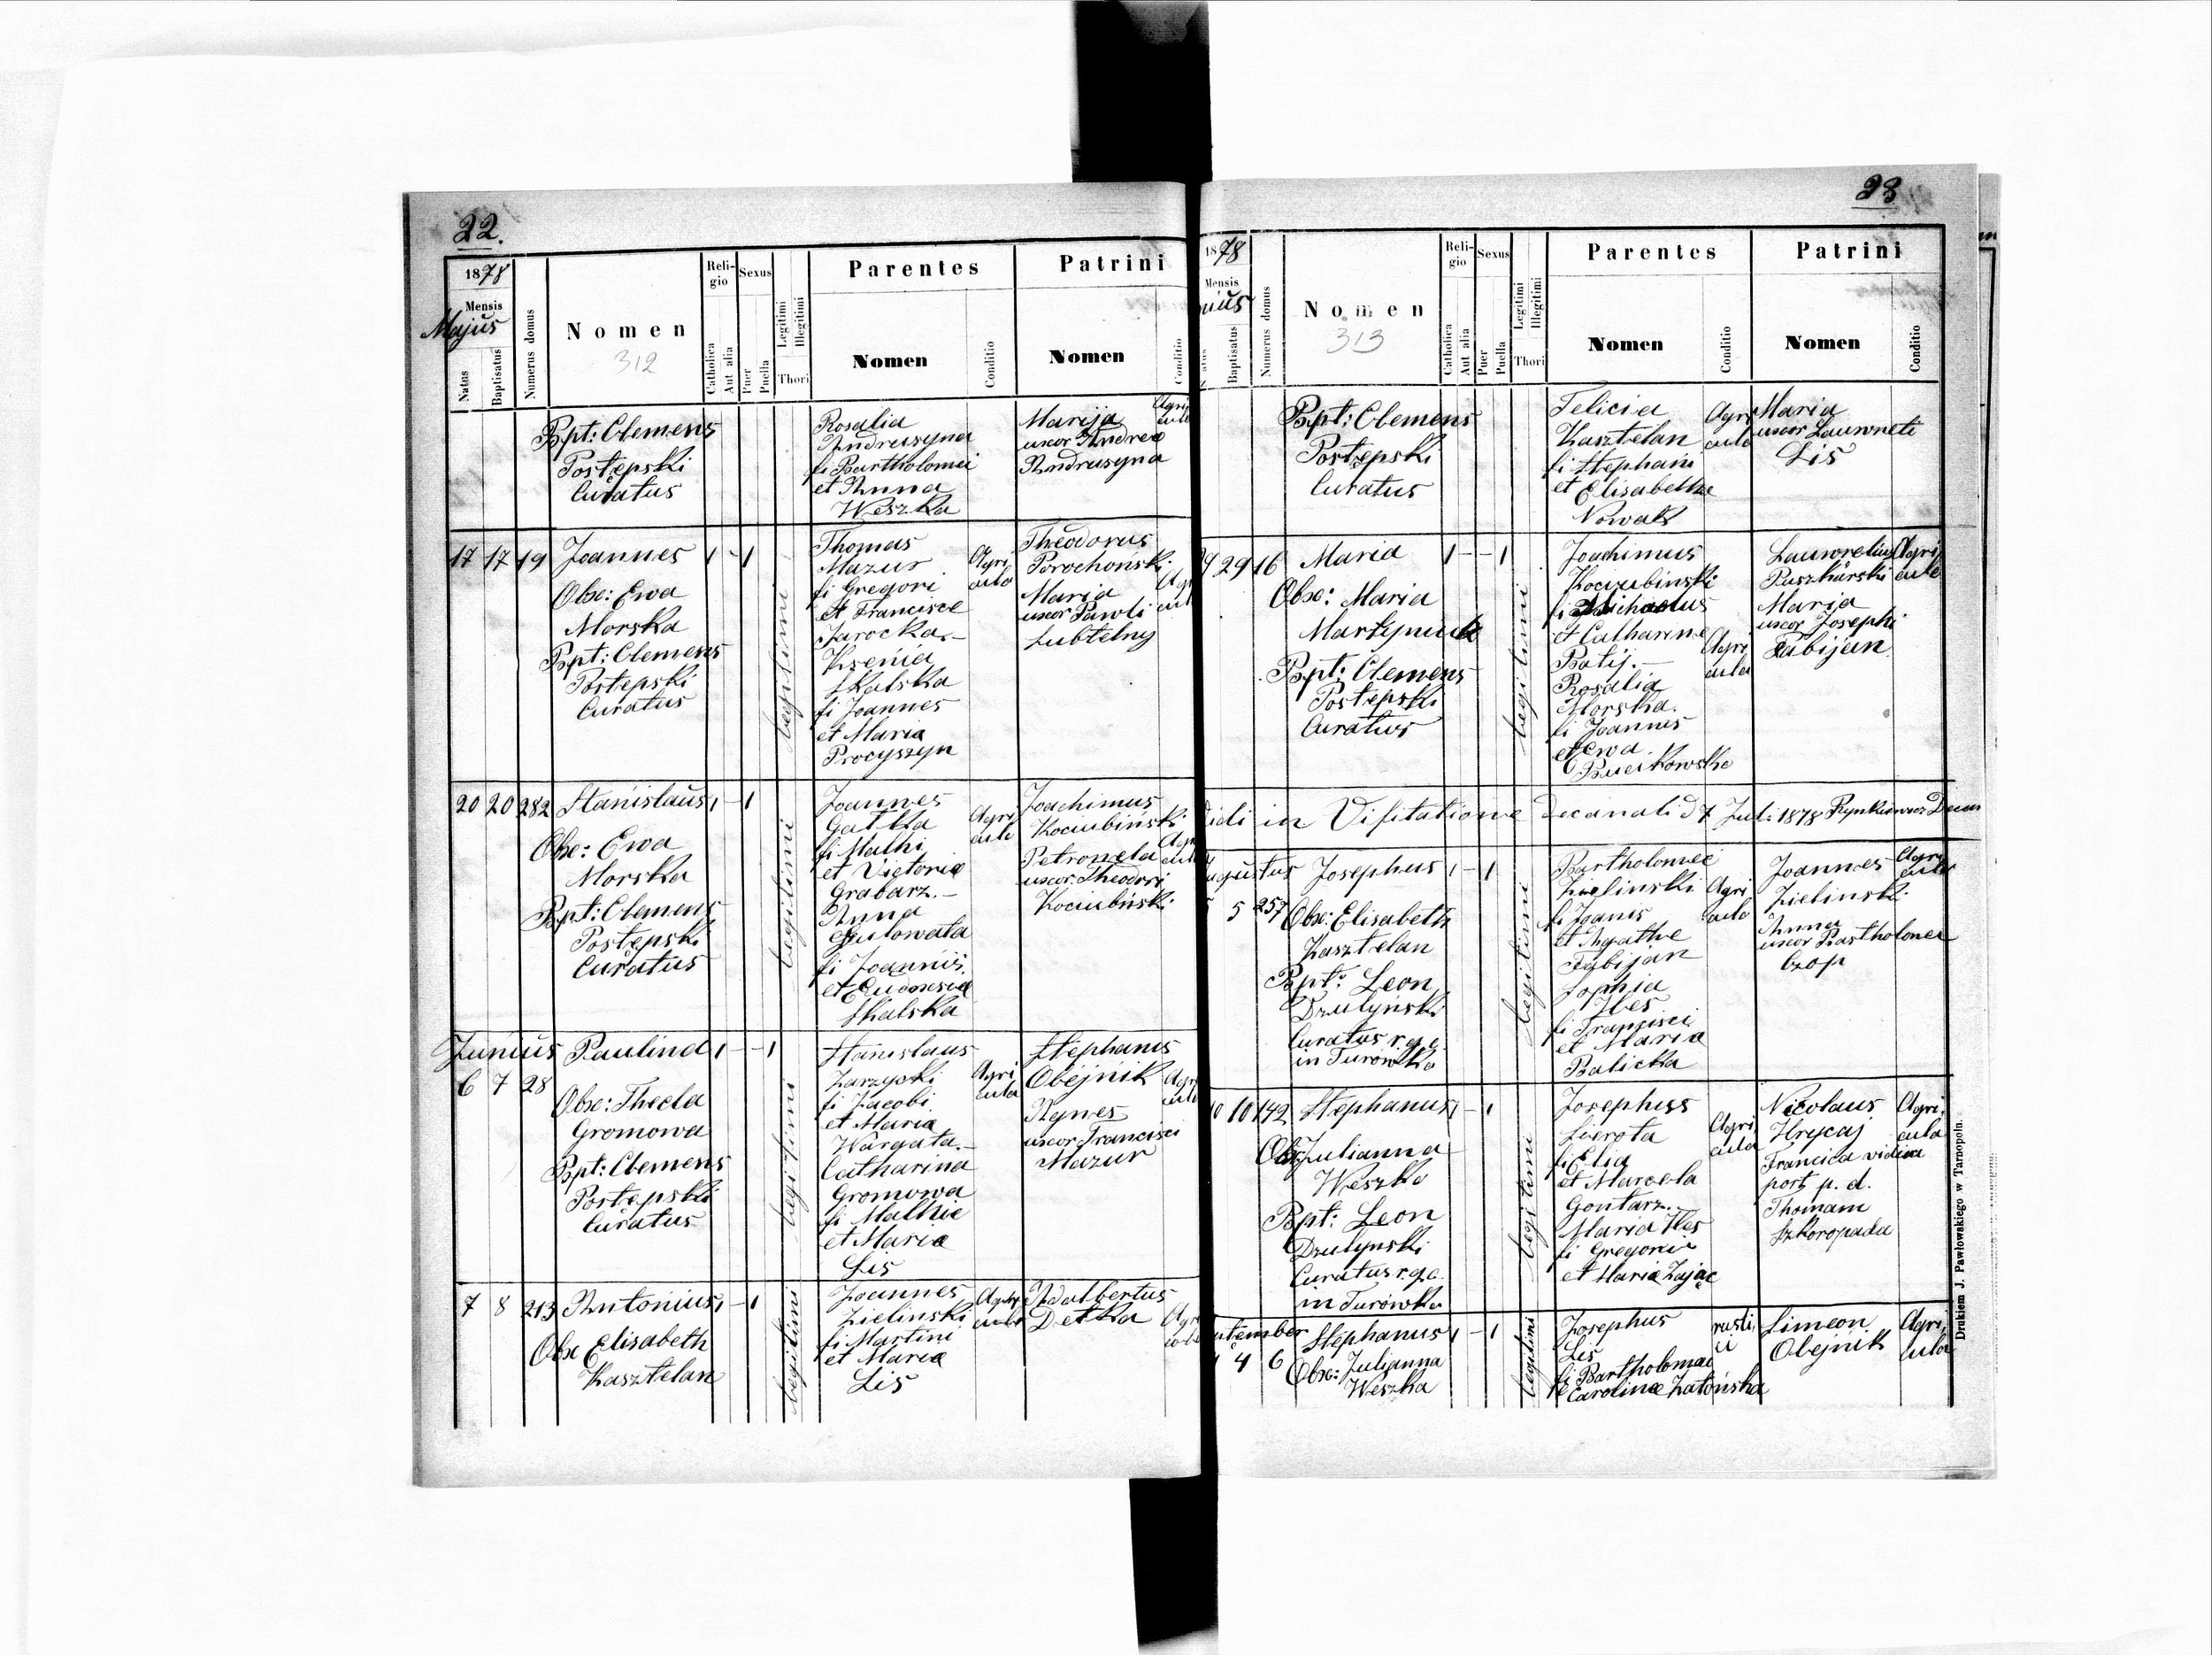 22.
1878
Mensis
Majus
Natus
Baptisatus
Numerus domus
Nomen
312
Religio
Catholica
Aut alia
Sexus
Puer
Puella
Legitimi
Illegitimi
Thori
Parentes
Nomen
Conditio
Patrini
Nomen
Conditio
Bpt: Clemens
Postępski
Curatus
Rosalia
Andrusyna
fi Bartholomei
et Anna
Weszka
Marija
uxor Andrea
Andrusyna
Agri
cula
17 17 19
Joannes
Obse: Ewa
Morska
Bpt: Clemens
Postępski
Curatus
legitimi
Thomas
Mazur
fi Gregori
et Francisce
Jarocka.-
Ksenia
Skalska
fi Joannes
et Maria
Procyszyn
Agri
cula
Theodorus
Porochoński.
Maria
uxor Pawli
Lubtelny
20 20 282
Stanislaus
Obse: Ewa
Morska
Bpt: Clemens
Postępski
Curatus
legitimi
Joannes
Gatka
fi Mathi
et Victoria
Grabarz.-
Anna
fi Joannis
et Eudoxia
Skalska
Agri
cula
Joachimus
Kociubiński.
Petronela
uxor Theodori
Kociubński.
Junius
6 7 28
Paulina
Obse: Thecla
Gromowa
Bpt: Clemens
Postępski
Curatus
legitimi
Stanislaus
Zarzycki
fi Jacobi
et Maria
Wargata.-
Catharina
Gromowa
fi Mathie
et Maria
Lis
Agri
cula
Stephanus
Obejnik
Agnes
uxor Francisci
Mazur
7 8 213
Antonius
Obse Elisabeth
Kasztelan
legitimi
Joannes
Zielinski
fi Martini
et Maria
Lis
Adalbertus
Detka
23
1878
Mensis
Baptisatus
Numerus domus
Nomen
313
Religio
Catholica
Aut alia
Sexus
Puer
Puella
Legitimi
Illegitimi
Thori
Parentes
Nomen
Conditio
Patrini
Nomen
Conditio
Bpt: Clemens
Postępski
Curatus
Felicia
Kasztelan
fi Stephani
et Elisabethe
Nowak
Agri
cula
Maria
uxor Lauwreti
Lis
29 16
Maria
Obse: Maria
Bpt: Clemens
Postępski
Curatus
legitimi
Joachimus
Kociubinski
fi Michaelus
et Catharine
Batij.-
Rosalia
Morska.
fi Joannes
et Ewa
Agri
cula
Lauwrelius
Puszkarski
Maria
uxor Josephi
Fabijan
Agri
cula
Vidi in Visitatione Decanali d 7 Juli 1878
Augustus
5 257
Josephus
Obse: Elisabeth
Kasztelan
Bpt: Leon
Dzulyński
Curatus r.g.c.
in Turówka
legitimi
Bartholomei
Zielinski
fi Joanis
et Agathe
Fabijan
Sophia
Iles
fi Francisci
et Maria
Balicka
Agri
cula
Joannes
Zielinski.
Anna
uxor Bartholomei
Czop
Agri
cula
10 142
Stephanus
Obs: Julianna
Weszka
Bpt: Leon
Dzulynski
Curatus r.g.c.
in Turówka
legitimi
Josephus
Sierota
fi Elia
et Marcela
Gontarz.-
Maria Iles
fi Gregorie
et Maria Zając
Agri
cula
Nicolaus
Hrycaj
Francica vidua
port p. d.
Thomam
Szkoropada
Agri
cula
4 6
Stephanus
Obse: Julijanna
Weszka
legitimi
Josephus
Lis
fi Bartholomai
et Caroline Zatońska
rusti
ci
Simeon
Obejnik
Agri
cula
Drukiem J. Pawłowskiego w Tarnopolu.